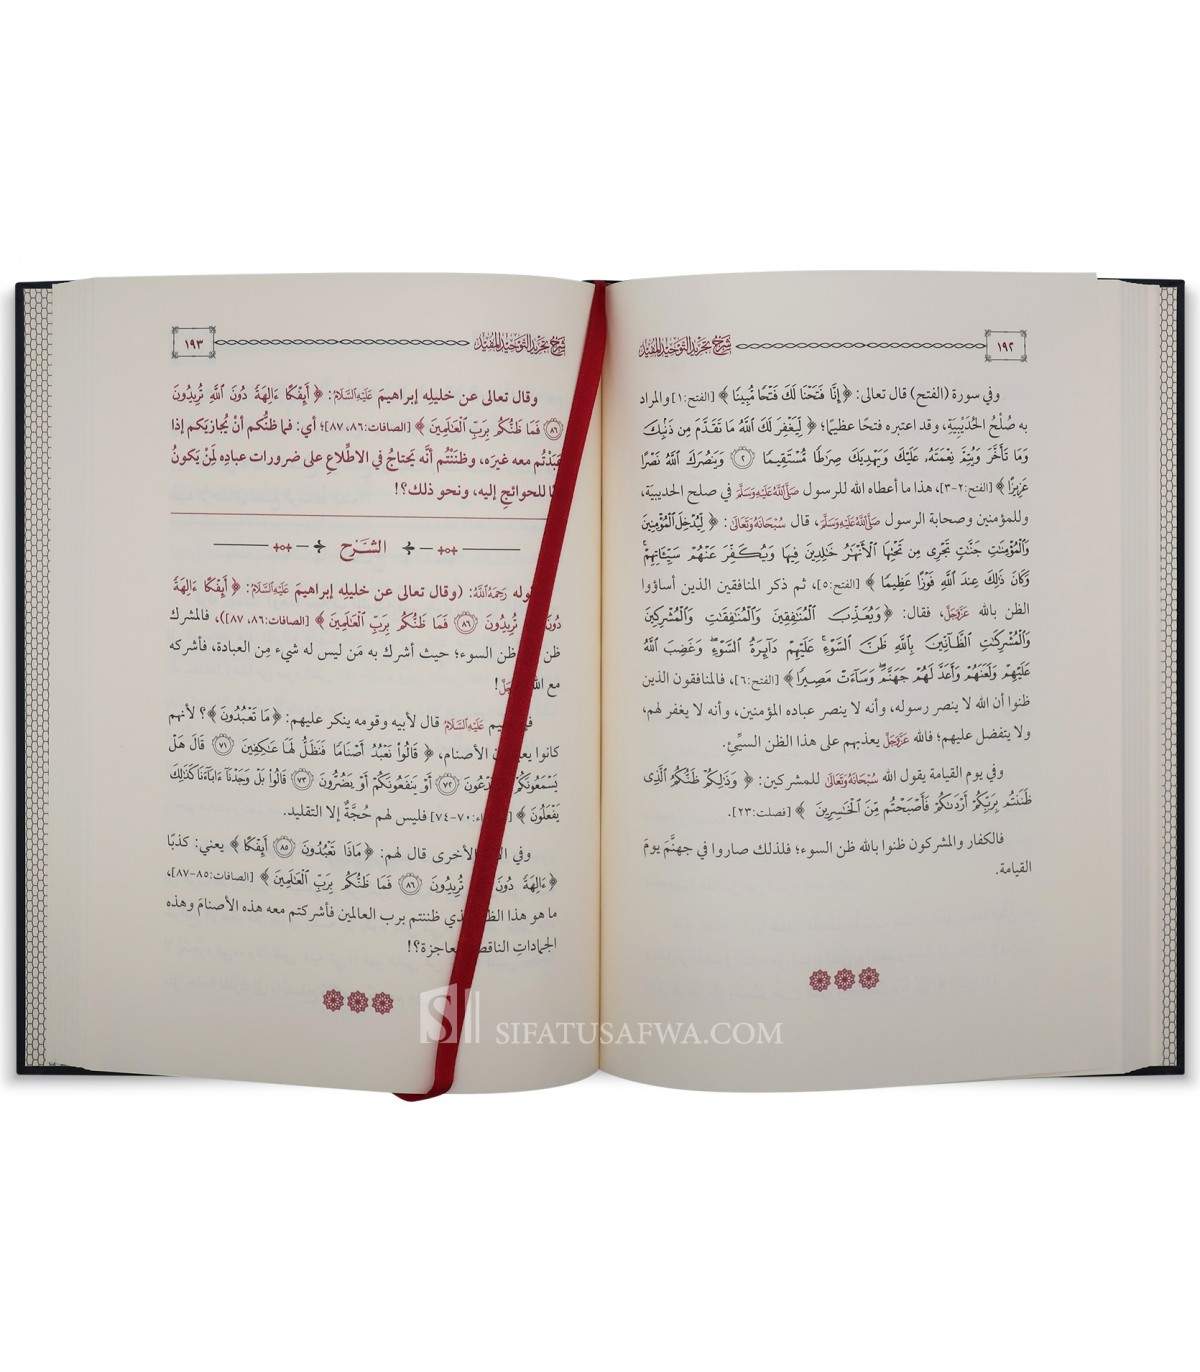 ١٩٢
شرح تجريد التوحيد المفيد
وفي سورة (الفتح) قال تعالى: ﴿إِنَّا فَتَحْنَا لَكَ فَتْحًا مُّبِينًا﴾ [الفتح:١] والمراد
به صُلْحُ الحُدَيْبِيَةِ، وقد اعتبره فتحًا عظيمًا؛ ﴿لِّيَغْفِرَ لَكَ اللَّهُ مَا تَقَدَّمَ مِن ذَنْبِكَ
وَمَا تَأَخَّرَ وَيُتِمَّ نِعْمَتَهُۥ عَلَيْكَ وَيَهْدِيَكَ صِرَٰطًا مُّسْتَقِيمًا ٢ وَيَنصُرَكَ اللَّهُ نَصْرًا
عَزِيزًا﴾ [الفتح:٢-٣]، هذا ما أعطاه الله للرسول ﷺ في صلح الحديبية،
وللمؤمنين وصحابة الرسول ﷺ، قال سُبْحَانَهُ وَتَعَالَى: ﴿لِّيُدْخِلَ الْمُؤْمِنِينَ
وَالْمُؤْمِنَٰتِ جَنَّٰتٍ تَجْرِى مِن تَحْتِهَا الْأَنْهَٰرُ خَٰلِدِينَ فِيهَا وَيُكَفِّرَ عَنْهُمْ سَيِّـَٔاتِهِمْ ۚ
وَكَانَ ذَٰلِكَ عِندَ اللَّهِ فَوْزًا عَظِيمًا﴾ [الفتح:٥]، ثم ذكر المنافقين الذين أساؤوا
الظن بالله عَزَّوَجَلَّ، فقال: ﴿وَيُعَذِّبَ الْمُنَٰفِقِينَ وَالْمُنَٰفِقَٰتِ وَالْمُشْرِكِينَ
وَالْمُشْرِكَٰتِ الظَّآنِّينَ بِاللَّهِ ظَنَّ السَّوْءِ ۚ عَلَيْهِمْ دَآئِرَةُ السَّوْءِ ۖ وَغَضِبَ اللَّهُ
عَلَيْهِمْ وَلَعَنَهُمْ وَأَعَدَّ لَهُمْ جَهَنَّمَ ۖ وَسَآءَتْ مَصِيرًا﴾ [الفتح:٦]، فالمنافقون الذين
ظنوا أن الله لا ينصر رسوله، وأنه لا ينصر عباده المؤمنين، وأنه لا يغفر لهم،
ولا يتفضل عليهم؛ فالله عَزَّوَجَلَّ يعذبهم على هذا الظن السيِّئ.
وفي يوم القيامة يقول الله سُبْحَانَهُ وَتَعَالَى للمشركين: ﴿وَذَٰلِكُمْ ظَنُّكُمُ الَّذِى
ظَنَنتُم بِرَبِّكُمْ أَرْدَىٰكُمْ فَأَصْبَحْتُم مِّنَ الْخَٰسِرِينَ﴾ [فصلت:٢٣].
فالكفار والمشركون ظنوا بالله ظن السوء؛ فلذلك صاروا في جهنَّمَ يومَ
القيامة.
شرح تجريد التوحيد المفيد
١٩٣
وقال تعالى عن خليلِه إبراهيمَ عَلَيْهِ السَّلَامُ: ﴿أَئِفْكًا ءَالِهَةً دُونَ اللَّهِ تُرِيدُونَ
٨٦ فَمَا ظَنُّكُم بِرَبِّ الْعَٰلَمِينَ﴾ [الصافات:٨٦، ٨٧]؛ أي: فما ظنُّكم أنْ يجازيَكم إذا
عَبَدْتُم معه غيرَه، وظنَنْتُم أنَّه يحتاجُ في الاطِّلاعِ على ضروراتِ عبادِه لِمَنْ يَكونُ
للحوائجِ إليه، ونحو ذلك؟!
الشَّرح
رَحِمَهُ اللَّهُ: (وقال تعالى عن خليلِه إبراهيمَ عَلَيْهِ السَّلَامُ: ﴿أَئِفْكًا ءَالِهَةً
تُرِيدُونَ ٨٦ فَمَا ظَنُّكُم بِرَبِّ الْعَٰلَمِينَ﴾ [الصافات:٨٦، ٨٧])، فالمشرك
ظن ظن السوء؛ حيث أشرك به مَن ليس له شيء مِن العبادة، فأشركه
مع الله !
عَلَيْهِ السَّلَامُ قال لأبيه وقومه ينكر عليهم: ﴿مَا تَعْبُدُونَ﴾؟ لأنهم
كانوا الأصنام، ﴿قَالُوا۟ نَعْبُدُ أَصْنَامًا فَنَظَلُّ لَهَا عَٰكِفِينَ ٧١ قَالَ هَلْ
يَسْمَعُونَكُمْ ٧٢ أَوْ يَنفَعُونَكُمْ أَوْ يَضُرُّونَ ٧٣ قَالُوا۟ بَلْ وَجَدْنَآ ءَابَآءَنَا كَذَٰلِكَ
يَفْعَلُونَ﴾ :٧٠-٧٤] فليس لهم حُجَّةٌ إلا التقليد.
وفي الأخرى قال لهم: ﴿مَاذَا تَعْبُدُونَ ٨٥ أَئِفْكًا﴾ يعني: كذبًا
﴿ءَالِهَةً دُونَ تُرِيدُونَ ٨٦ فَمَا ظَنُّكُم بِرَبِّ الْعَٰلَمِينَ﴾ [الصافات:٨٥-٨٧]،
ما هو هذا ظننتم برب العالمين فأشركتم معه هذه الأصنامَ وهذه
الجماداتِ
SIFATUSAFWA.COM